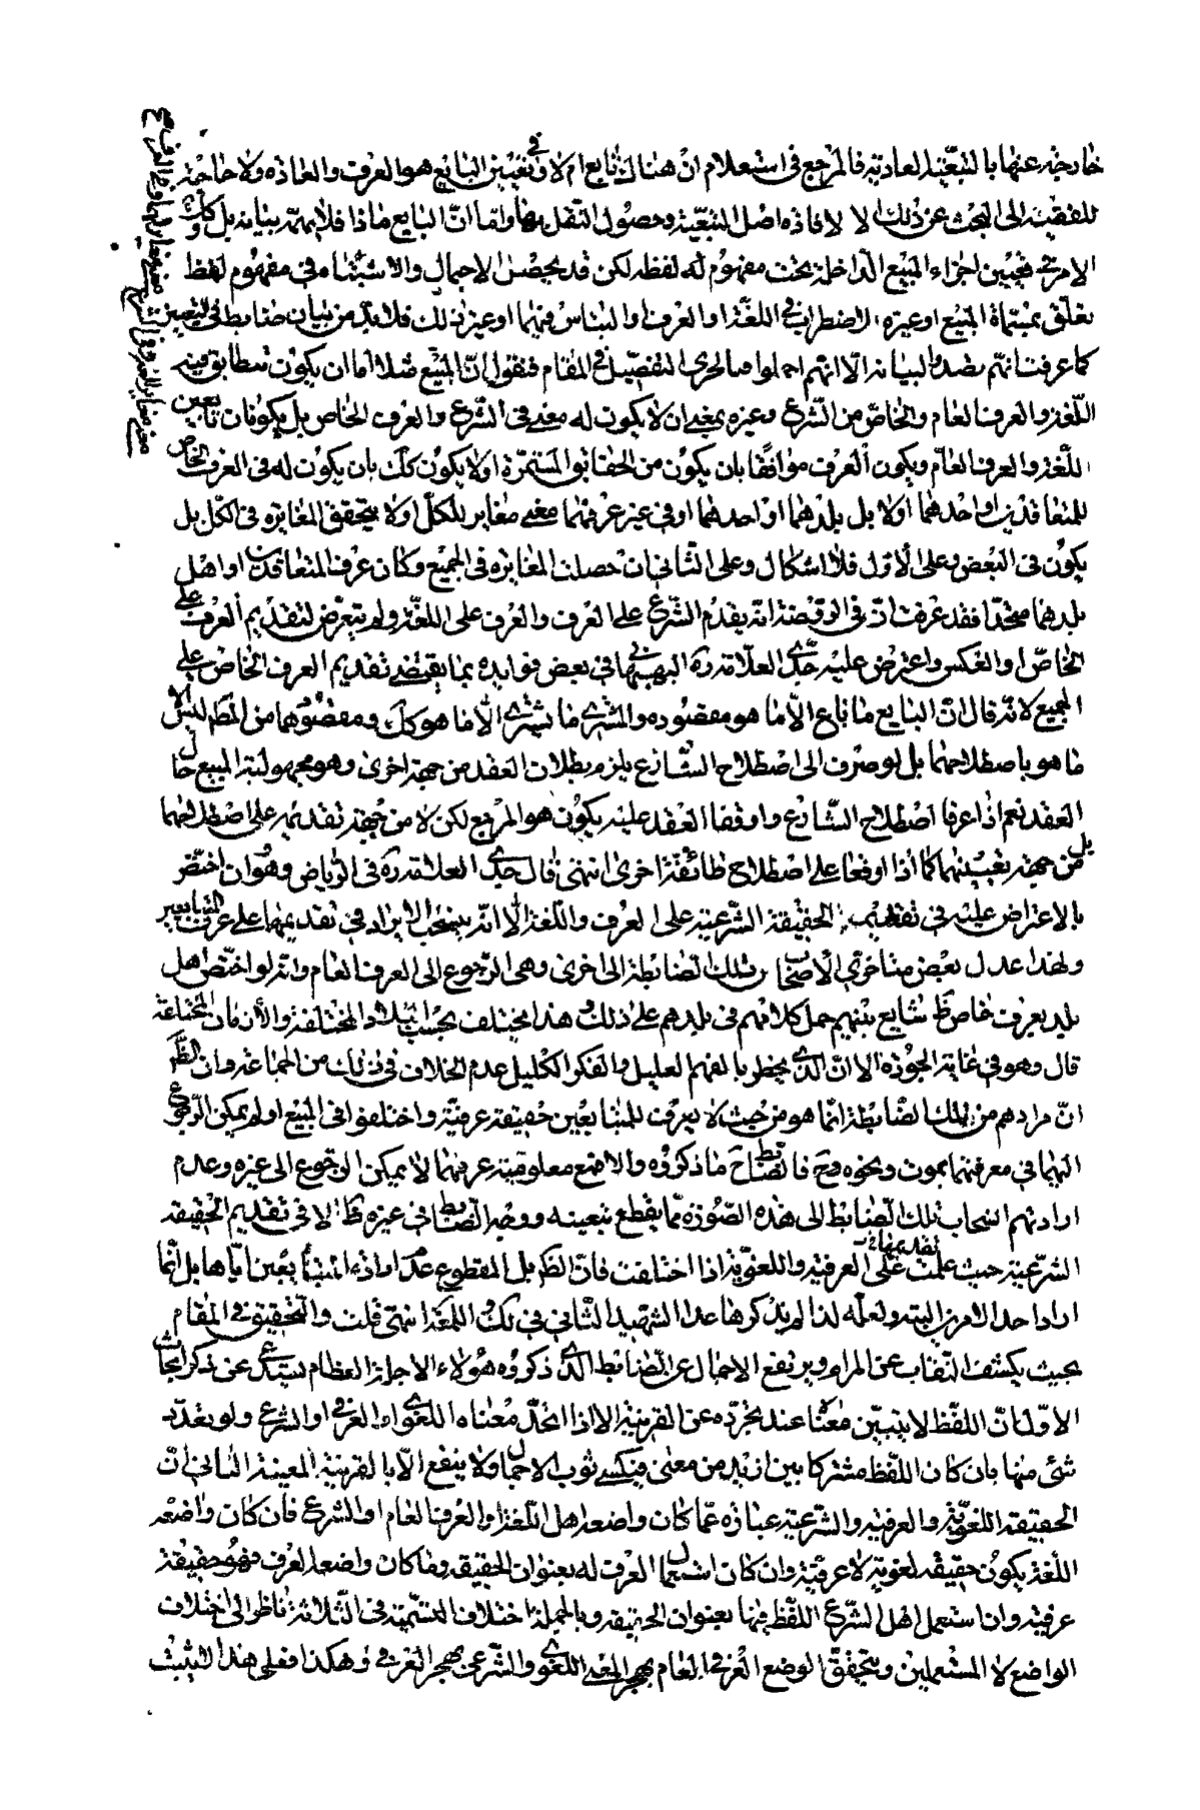 خارجة عنها بالتبعية العادية فالمرجع فى استعلام ان هناك تابع ام لا وفى تعيين التابع هو العرف والعادة ولا حاجة
للفقيه الى البحث عن ذلك الا لافادة اصل التبعية وحصول النقل بها واما انّ التابع ماذا فلا يهمّه بيانه بل وكك
الامر فى تعيين اجزاء المبيع الداخلة تحت مفهوم له لفظه لكن قد يحصل الاجمال والاشتباه فى مفهوم لفظ
تعلّق بمسمّاه المبيع او غيره لاضطراب فى اللغة او العرف او التباس فيهما او غير ذلك فلابدّ من بيان ضابط فى التعيين
كما عرفت انهم بصدد البيانه الّا انهم اجملوا وبالحرىّ التفصيل فى المقام فنقول انّ المبيع مثلا اما ان يكون تتطابق فيه
اللّغة والعرف العام والخاصّ من الشرع وغيره بمعنى ان لا يكون له معنى فى الشرع والعرف الخاص بل يكونان تابعين
للّغة والعرف العامّ ويكون العرف موافقا بان يكون من الحقائق المستمرّة او لا يكون كك بان يكون له فى العرف الخاص
للمتعاقدين او احدهما اولا بل بلدهما او احدهما او فى غير عرفهما معنى مغاير للكلّ او لا يتحقق المغايرة فى الكلّ بل
يكون فى البعض وعلى الاول فلا اشكال وعلى الثانى ان حصلت المغايرة فى الجميع وكان عرف المتعاقدين او اهل
بلدهما متحّدا فقد عرفت انّ فى الروضة انه يقدم الشرع على العرف والعرف على اللغة ولم يتعرّض لتقديم العرف على
الخاصّ او العكس واعترض عليه جدّى العلامة ره البهبهانى فى بعض فوايده بما يقتضى تقديم العرف الخاصّ على
الجميع لانه قال انّ البايع ما باع الّا ما هو مقصوده والمشترى ما يشترى الّا ما هو كك ومقصودهما من اللفظ ليس الا
ما هو باصطلاحهما بل لو صرف الى اصطلاح الشارع يلزم بطلان العقد من جهة اخرى وهو مجهولية المبيع حال
العقد نعم اذا عرفا اصطلاح الشارع واوقفا العقد عليه يكون هو المرجع لكن لا من جهة تقديمه على اصطلاحهما
بل من جهة تعيينهما كما اذا اوقعا على اصطلاح طائفة اخرى انتهى قال جدى العلامة قدره فى الرياض وهو ان اختصّ
بالاعتراض عليه فى تقديم الحقيقة الشرعية على العرف واللّغة الّا انّه ينسحب الايراد فى تقديمها على عرف المتبايعين
ولهذا عدل بعض متاخرى الاصحاب تلك الضابطة الى اخرى وهى الرجوع الى العرف العام وانه لو اختصّ اهل
بلد بعرف خاص ظ شايع بينهم حمل كلامهم فى بلدهم على ذلك وهذا يختلف بحسب البلاد المختلفة والأزمان المختلفة
قال وهو فى غاية الجودة الا انّ الّذى يخطر بالفهم العليل والفكر الكليل عدم الخلاف فى ذلك من الجماعة وان الظّ
انّ مرادهم من تلك الضابطة انّما هو من حيث لا يعرف للمتبايعين حقيقة عرفيّة واختلفوا فى المبيع او لم يمكن الرجوع
اليهما فى معرفتهما بموت ونحوه وح فالضابط ح ما ذكروه والا فمع معلومية عرفهما لا يمكن الرجوع الى غيره وعدم
ارادتهم انسحاب تلك الضابط الى هذه الصورة مما يقطع بتعينه ووجه الضابط فى غيره ظ الا فى تقديم الحقيقة
الشرعية حيث علمت تقديمها على العرفية واللغويّة اذا اختلفت فانّ الظّ بل المقطوع عدم ارادة المتبايعين ايّاها بل انّما
ارادا احد الامرين البتة ولعلّه لذا لم يذكرها عدا الشهيد الثانى فى ذلك اللمعة انتهى قلت والتحقيق فى المقام
بحيث يكشف النقاب عن المرام ويرتفع الاجمال عن الضابط الذى ذكروه هؤلاء الاجلّة العظام يستدعى عن ذكر ابحاث
الاوّل انّ اللفظ لا يتبيّن معناه عند تجرّده عن القرينة الا اذا اتحدّ معناه اللغوى او العرفى او الشرعى ولو تعدّد
شئ منها بان كان اللّفظ مشتركا بين ازيد من معنى فيكسى ثوب الاجمال ولا ينفع الّا بالقرينة المعينة الثانى انّ
الحقيقة اللغويّة والعرفية والشرعية عبارة عمّا كان واضعه اهل اللغة او العرف العام او الشرع فان كان واضعه
اللّغة يكون حقيقة لغوية لا عرفيّة وان كان استعمال العرف له بعنوان الحقيقة وما كان واضعه العرف فهو حقيقة
عرفية وان استعمل اهل الشرع اللّفظ فيها بعنوان الحقيقة وبالجملة اختلاف التسمية فى الثلاثة ناظر الى اختلاف
الواضع لا المستعملين ويتحقق الوضع العرفى العام بهجر المعنى اللغوى والشرعى بهجر العرفى وهكذا فعلى هذا التثبيت